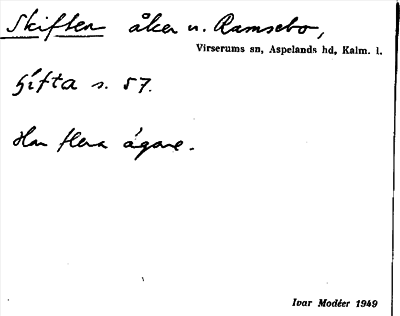 Skiften åker u. Ramsebo,
Virserums sn, Aspelands hd, Kalm. l.
Gifta s. 57.
Har flera ägare.
Ivar Modéer 1949